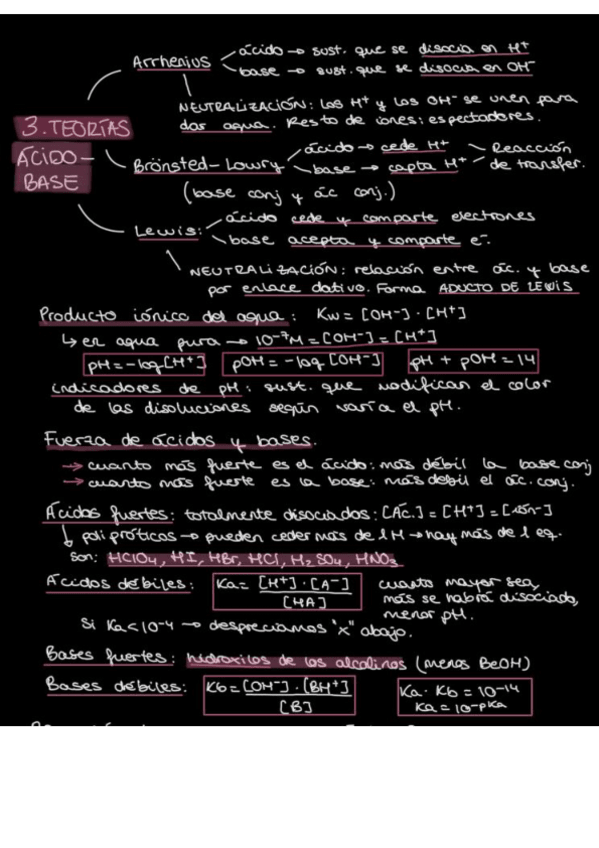 3. TEORÍAS
ÁCIDO-
BASE
Arrhenius
ácido → sust. que se disocia en H⁺
base → sust. que se disocia en OH⁻
NEUTRALIZACIÓN: los H⁺ y los OH⁻ se unen para
dar agua. Resto de iones: espectadores.
Brönsted-Lowry
ácido → cede H⁺
base → capta H⁺
Reacción
de transfer.
(base conj y ác conj.)
Lewis:
ácido cede y comparte electrones
base acepta y comparte e⁻.
NEUTRALIZACIÓN: relación entre ác. y base
por enlace dativo. Forma ADUCTO DE LEWIS
Producto iónico del agua: Kw = [OH⁻] · [H⁺]
↳ en agua pura → 10⁻⁷M = [OH⁻] = [H⁺]
pH = -log[H⁺] pOH = -log[OH⁻] pH + pOH = 14
indicadores de pH: sust. que modifican el color
de las disoluciones según varía el pH.
Fuerza de ácidos y bases.
→ cuanto más fuerte es el ácido: más débil la base conj
→ cuanto más fuerte es la base: más debil el ác. conj.
Ácidos fuertes: totalmente disociados: [Ác.] = [H⁺] = [ión⁻]
↳ polipróticos → pueden ceder más de 1 H → hay más de 1 eq.
Son: HClO₄, HI, HBr, HCl, H₂SO₄, HNO₃
Ácidos débiles: Ka = [H⁺] · [A⁻] / [HA]
cuanto mayor sea,
más se habrá disociado,
menor pH.
Si Ka < 10⁻⁴ → despreciamos "x" abajo.
Bases fuertes: hidroxilos de los alcalinos (menos BeOH)
Bases débiles: Kb = [OH⁻] · [BH⁺] / [B]
Ka · Kb = 10⁻¹⁴
Ka = 10⁻ᵖᴷᵃ